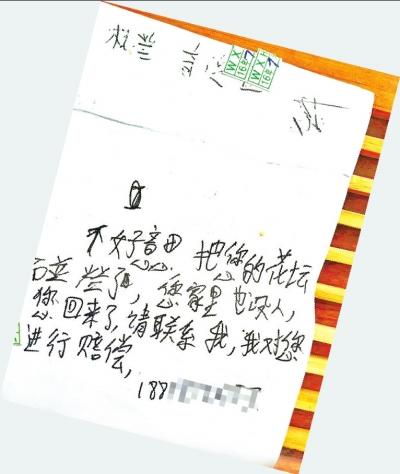 WX
168
WX
168
不好意思 把您的花坛
碰 了, 您家里也没人,
您回来了, 请联系我, 我对您
进行赔偿,
188